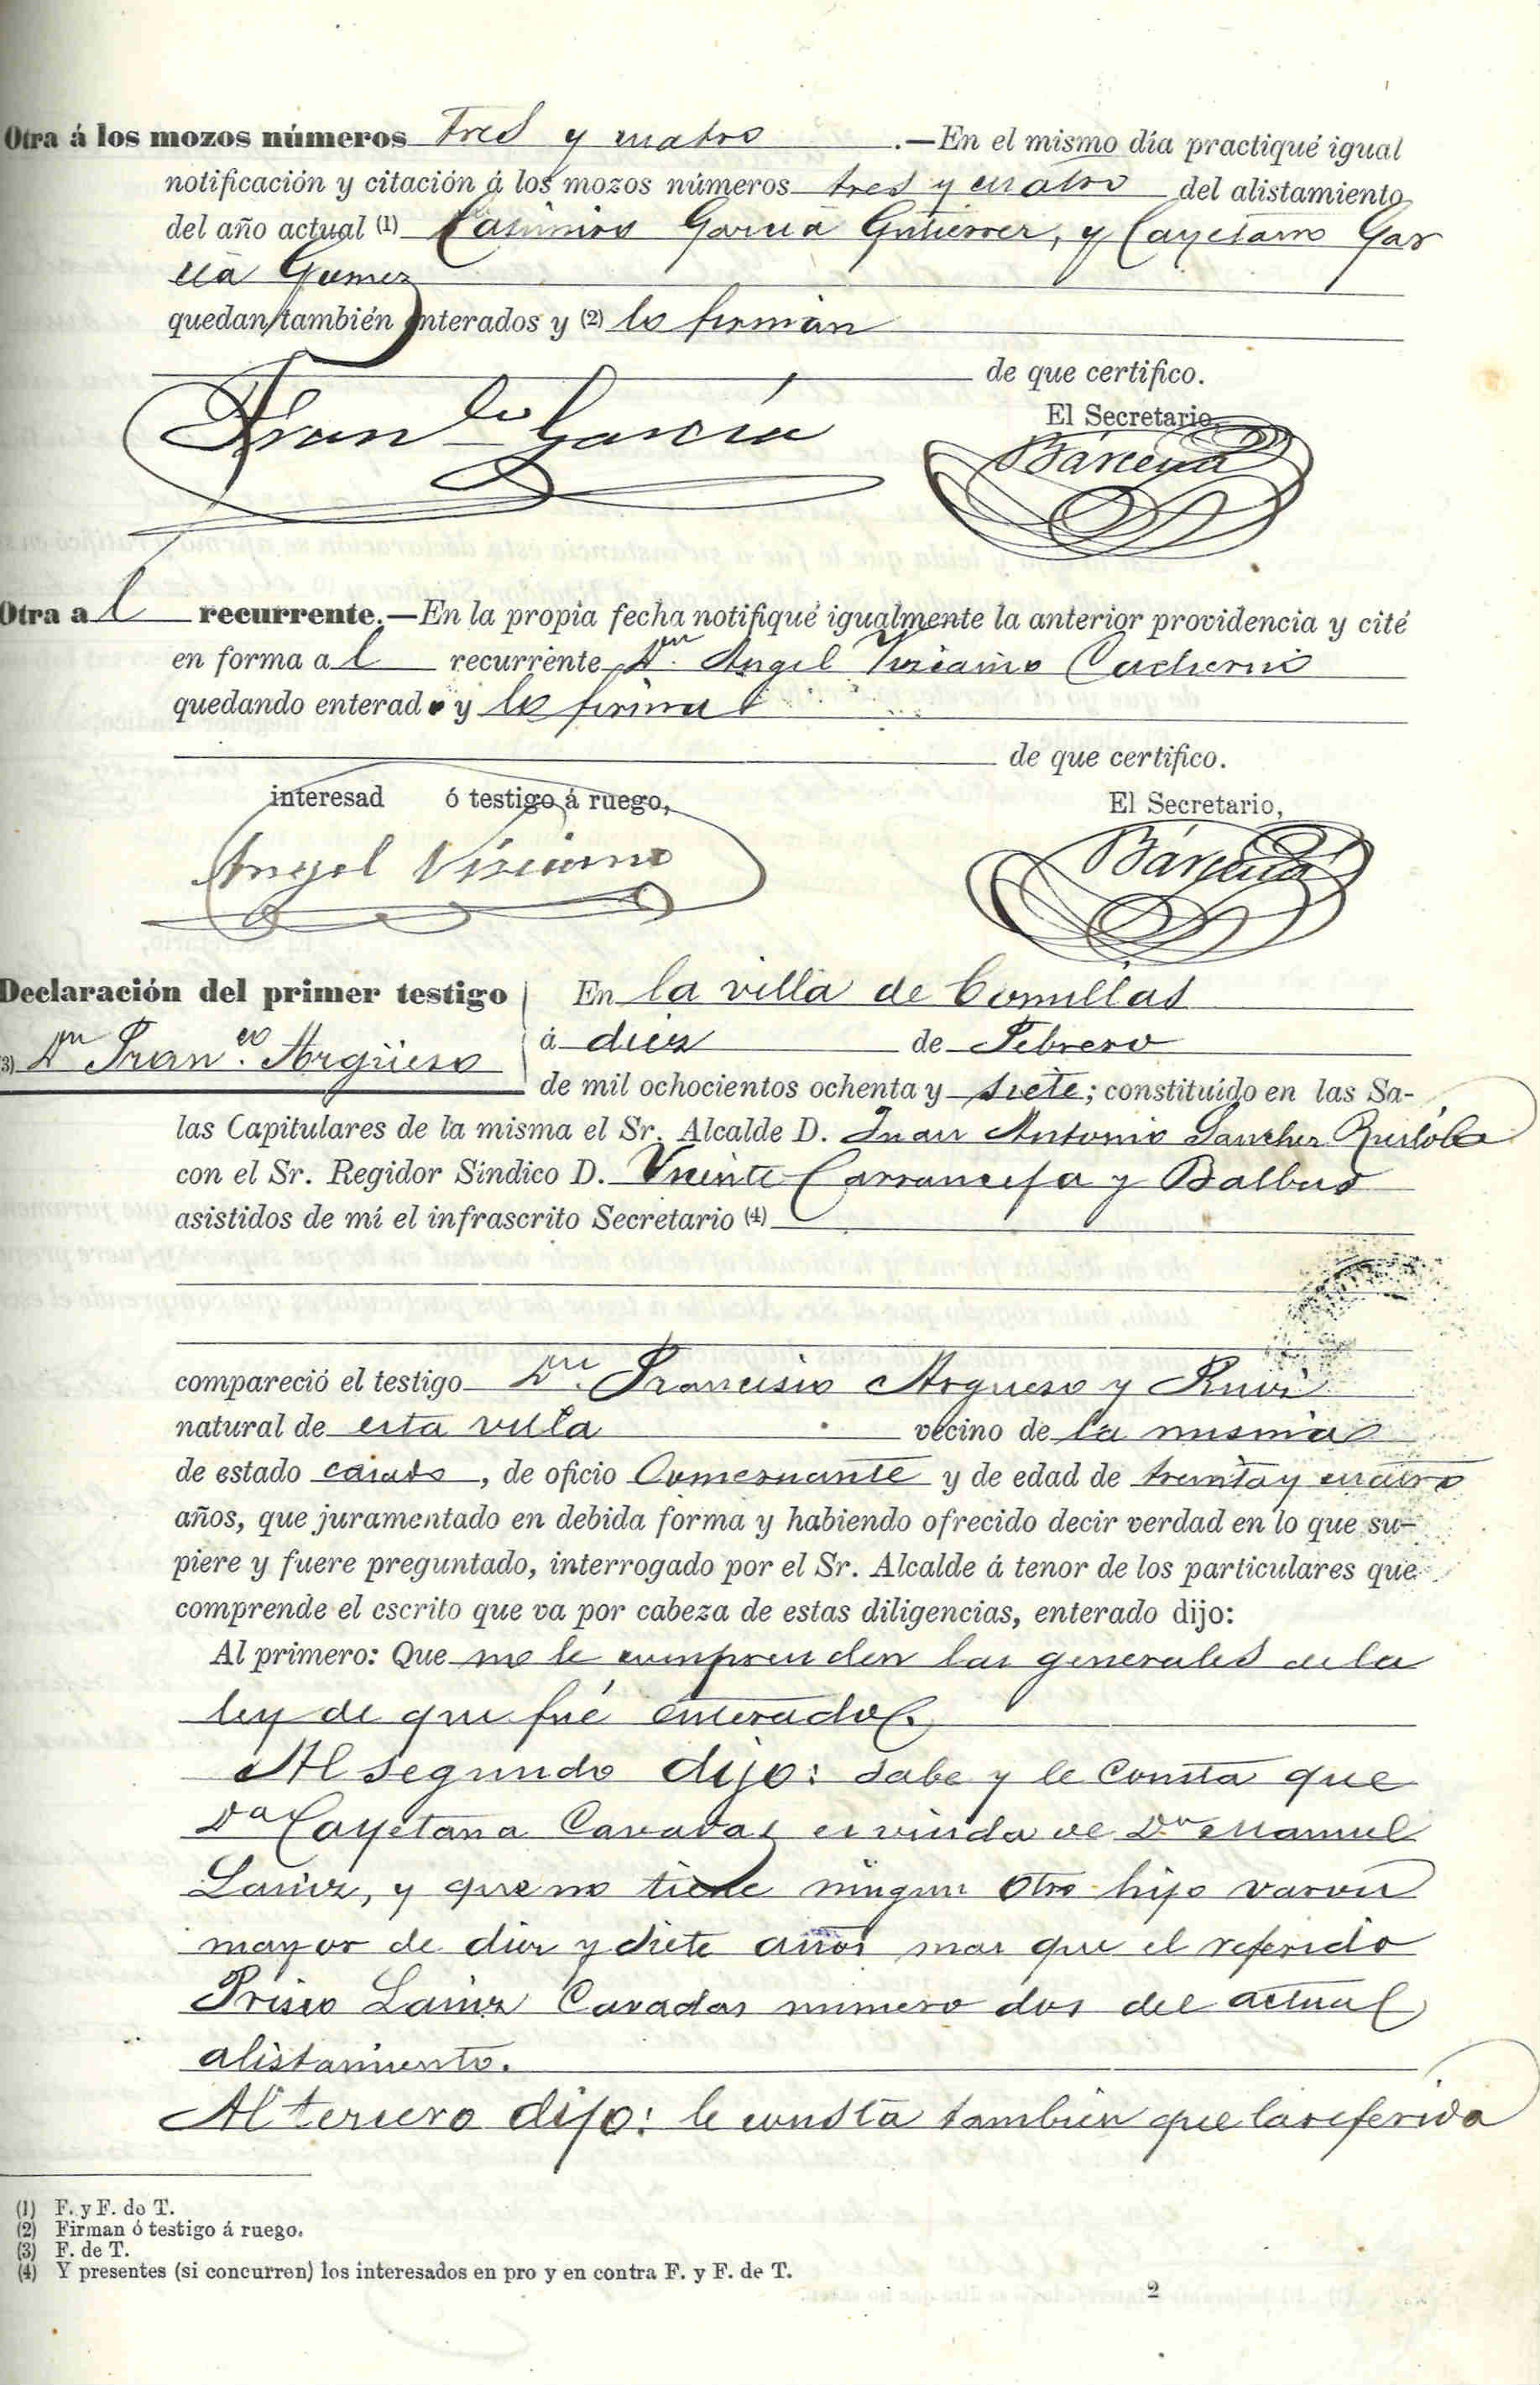 Otra á los mozos números tres y cuatro .—En el mismo día practiqué igual
notificación y citación á los mozos números tres y cuatro del alistamiento
del año actual (1) Casimiro Garcia Gutierrez, y Cayetano Gar
cia Gomez
quedan también enterados y (2) lo firman
de que certifico.
El Secretario,
Fran.co Garcia
Bárcena
Otra al recurrente.—En la propia fecha notifiqué igualmente la anterior providencia y cité
en forma al recurrente Dn. Angel
quedando enterado y lo firma
de que certifico.
interesad ó testigo á ruego,
El Secretario,
Angel
Bárcena
Declaración del primer testigo
(3) Dn Fran.co Argüeso
En la villa de Comillas
á diez de Febrero
de mil ochocientos ochenta y siete; constituído en las Sa-
las Capitulares de la misma el Sr. Alcalde D. Juan Antonio Sanchez
con el Sr. Regidor Síndico D. Vicente Carranceja y Balbas
asistidos de mí el infrascrito Secretario (4)
compareció el testigo Dn. Francisco Argueso y Ruiz
natural de esta villa vecino de la misma
de estado casado, de oficio Comerciante y de edad de treinta y cuatro
años, que juramentado en debida forma y habiendo ofrecido decir verdad en lo que su-
piere y fuere preguntado, interrogado por el Sr. Alcalde á tenor de los particulares que
comprende el escrito que va por cabeza de estas diligencias, enterado dijo:
Al primero: Que no le comprenden las generales de la
ley de que fué enterado.
Al segundo dijo: sabe y le consta que
Da Cayetana Cavadas es viuda de Dn Manuel
Lainz, y que no tiene ningun otro hijo varon
mayor de diez y siete años mas que el referido
Prisco Lainz Cavadas numero dos del actual
alistamiento.
Al tercero dijo: le consta tambien que la referida
(1) F. y F. de T.
(2) Firman ó testigo á ruego.
(3) F. de T.
(4) Y presentes (si concurren) los interesados en pro y en contra F. y F. de T.
2